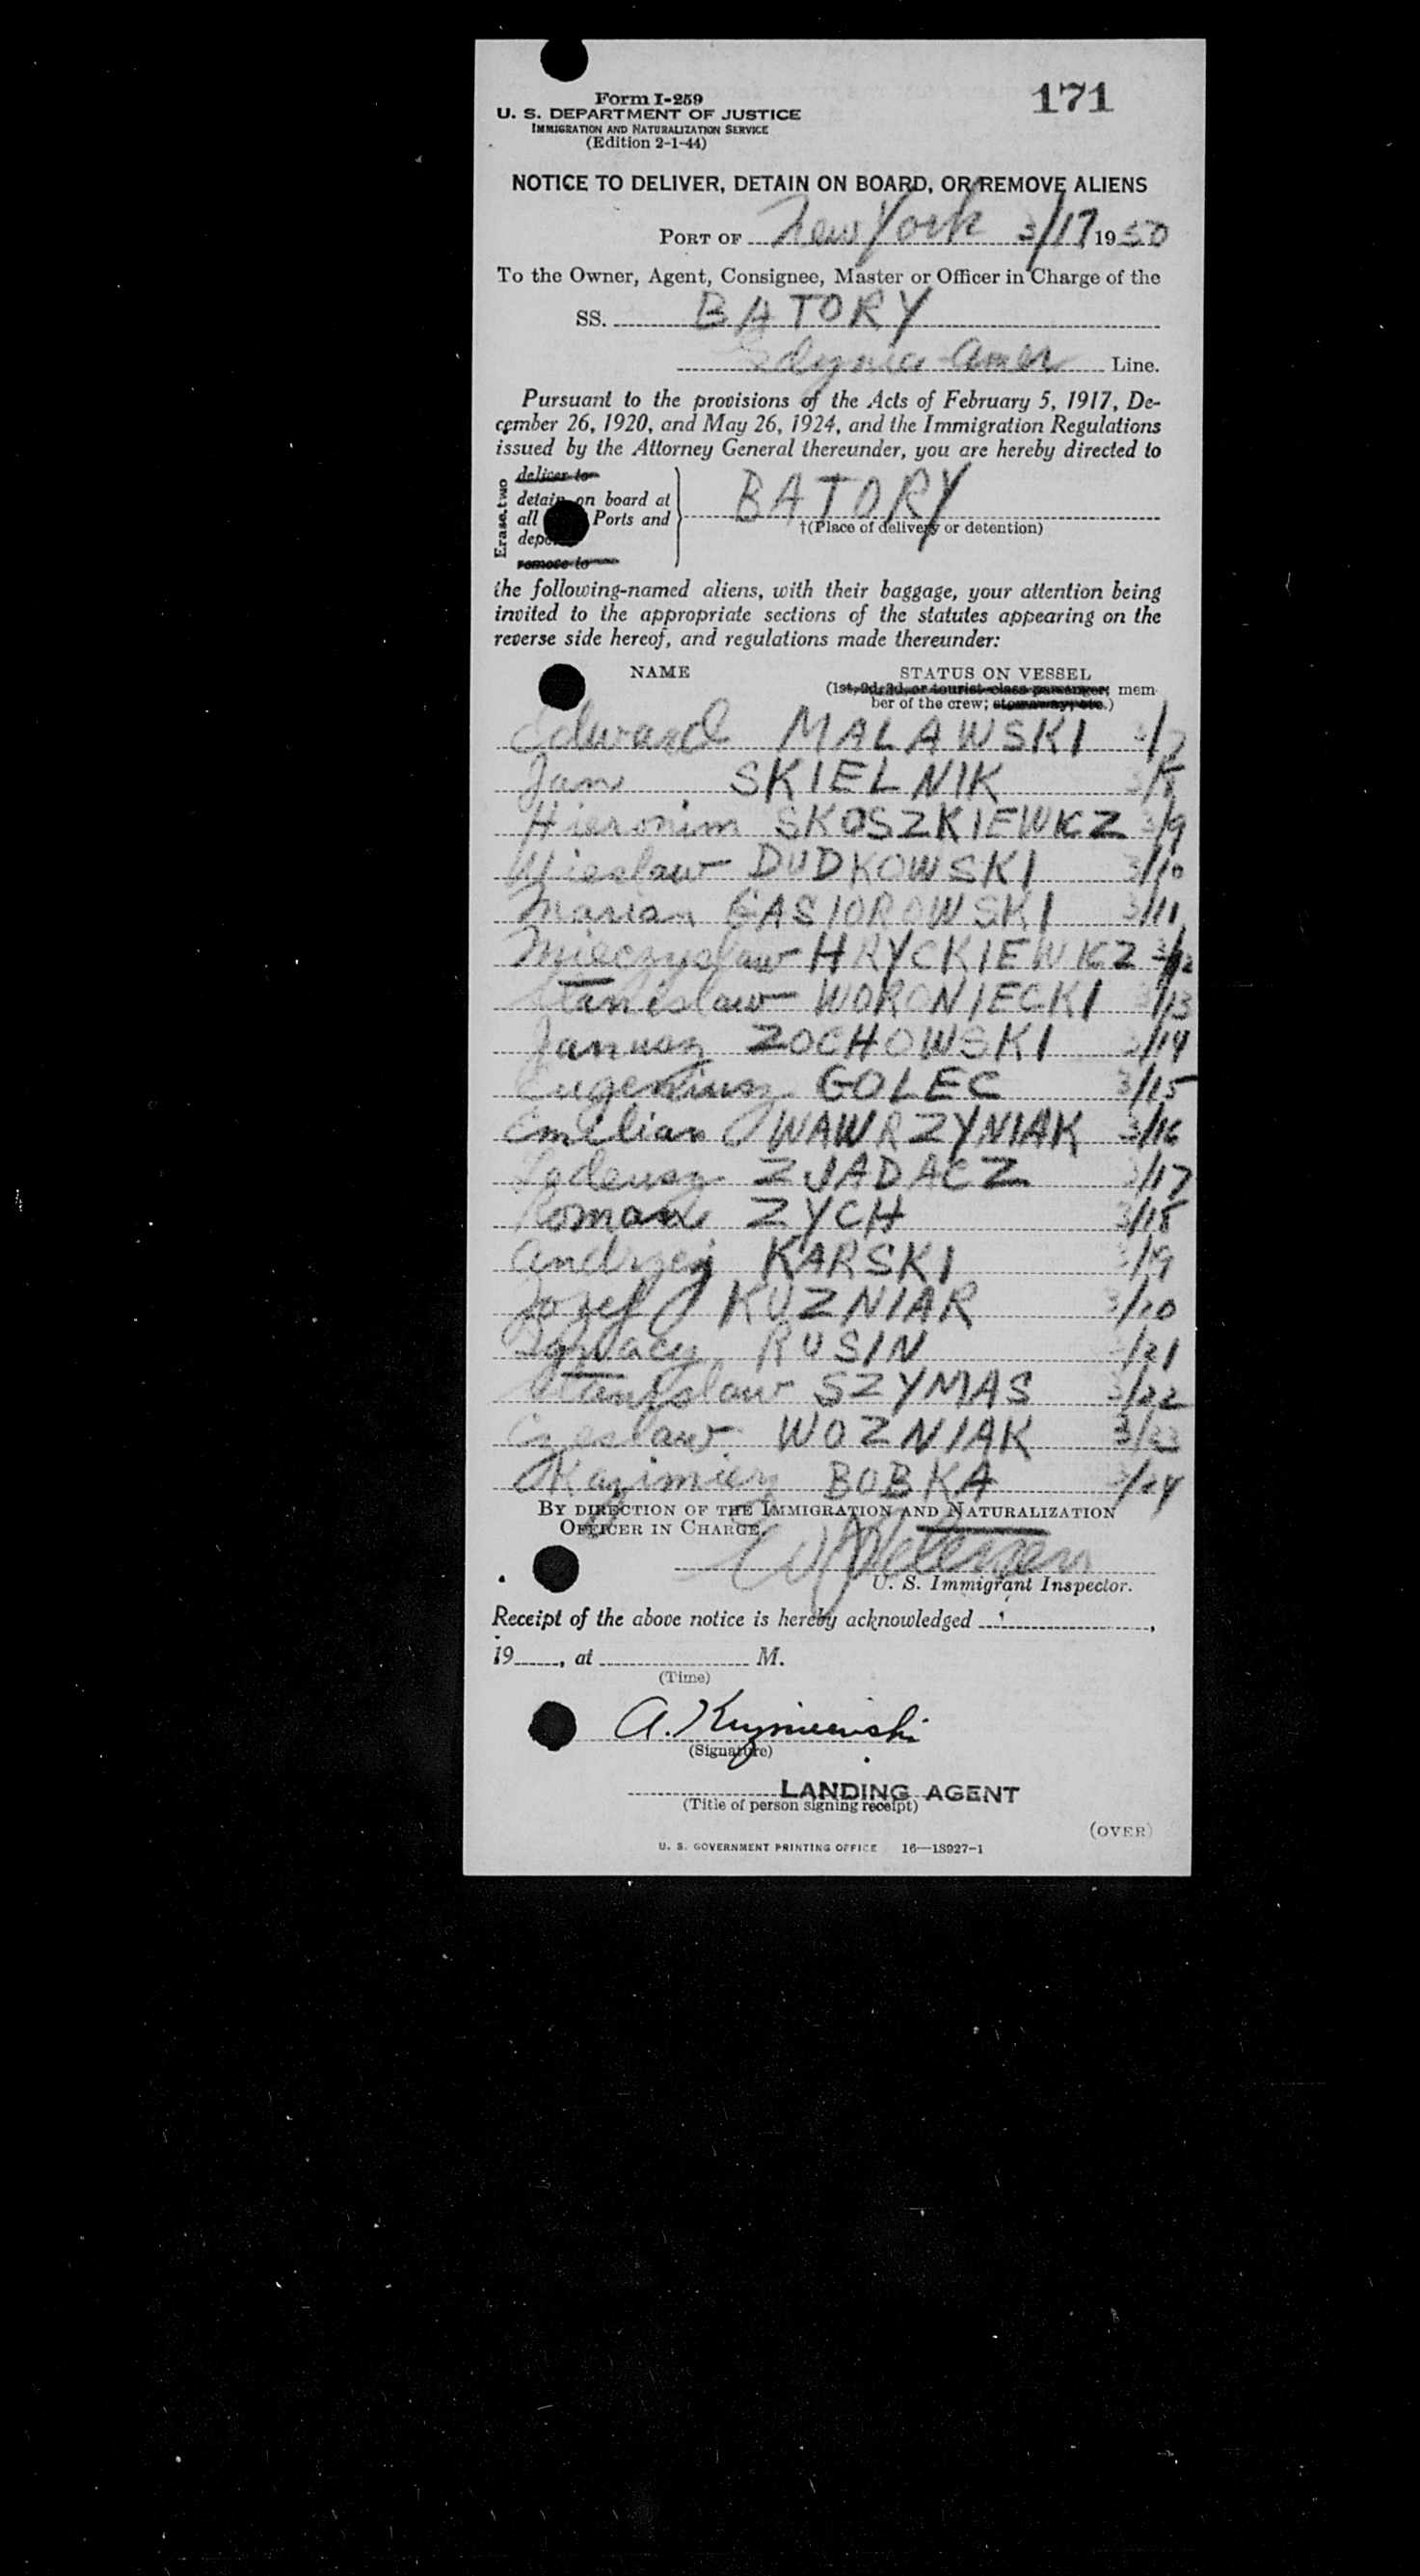 171
Form I-259
U. S. DEPARTMENT OF JUSTICE
IMMIGRATION AND NATURALIZATION SERVICE
(Edition 2-1-44)
NOTICE TO DELIVER, DETAIN ON BOARD, OR REMOVE ALIENS
PORT OF New York 3/17 1950
To the Owner, Agent, Consignee, Master or Officer in Charge of the
SS. BATORY
Gdynia Amer Line.
Pursuant to the provisions of the Acts of February 5, 1917, De-
cember 26, 1920, and May 26, 1924, and the Immigration Regulations
issued by the Attorney General thereunder, you are hereby directed to
Erase two
deliver to
detain on board at
all Ports and
remove to
BATORY
†(Place of delivery or detention)
the following-named aliens, with their baggage, your attention being
invited to the appropriate sections of the statutes appearing on the
reverse side hereof, and regulations made thereunder:
NAME STATUS ON VESSEL
(1st, 2d, 3d, or tourist-class passenger; mem-
ber of the crew; stowaway, etc.)
Edward MALAWSKI 3/7
Jan SKIELNIK 3/8
Hieronim SKOSZKIEWICZ 3/9
Wieslaw DUDKOWSKI 3/10
Marian GASIOROWSKI 3/11
Mieczyslaw HRYCKIEWICZ 3/12
Stanislaw WORONIECKI 3/13
Janusz ZOCHOWSKI 3/14
Eugeniusz GOLEC 3/15
Emilian WAWRZYNIAK 3/16
Tadeusz ZJADACZ 3/17
Roman ZYCH 3/18
Andrzej KARSKI 3/19
Jozef KUZNIAR 3/20
Ignacy RUSIN 3/21
Stanislaw SZYMAS 3/22
Czeslaw WOZNIAK 3/23
Kazimierz BOBKA 3/24
BY DIRECTION OF THE IMMIGRATION AND NATURALIZATION
OFFICER IN CHARGE.
U. S. Immigrant Inspector.
Receipt of the above notice is hereby acknowledged
19, at M.
(Time)
A.
(Signature)
LANDING AGENT
(Title of person signing receipt)
(OVER)
U. S. GOVERNMENT PRINTING OFFICE 16—18927-1